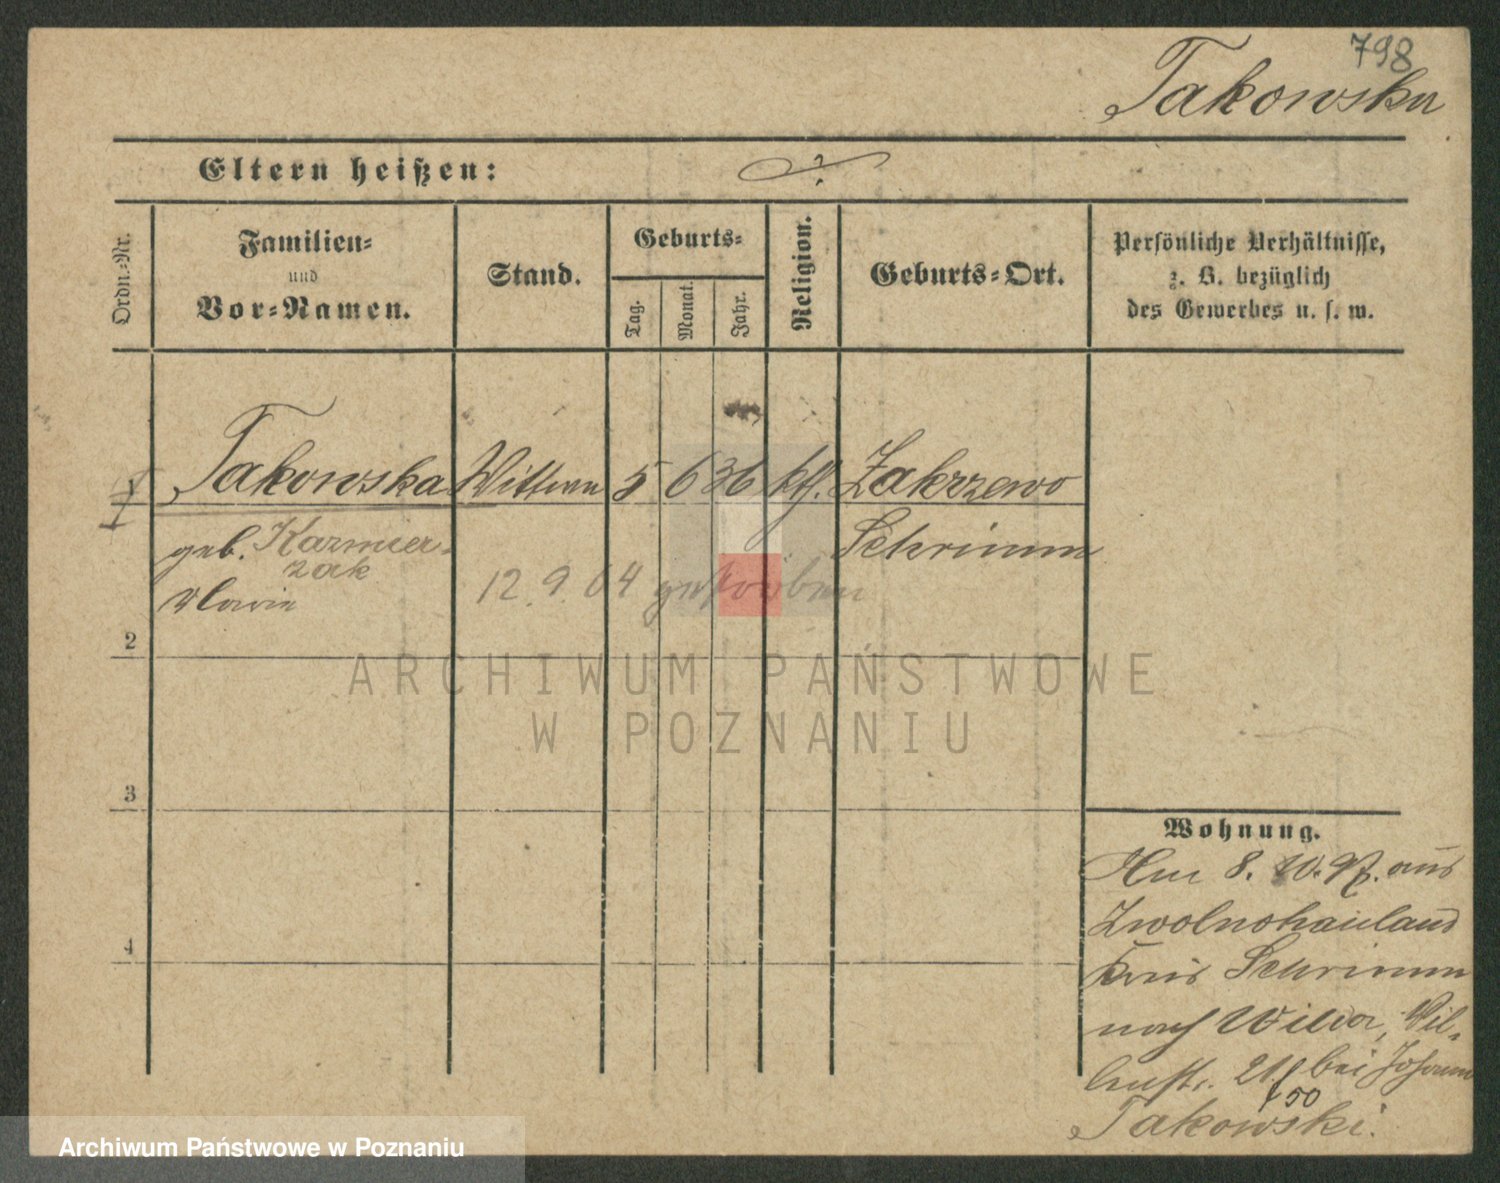 798
Takowska
Eltern heißen: ?
Ordn.-Nr.
Familien-
und
Vor-Namen.
Stand.
Geburts-
Tag.
Monat.
Jahr.
Religion.
Geburts-Ort.
Persönliche Verhältnisse,
z. B. bezüglich
des Gewerbes u. s. w.
Takowska Wittwe 5 6 36 kth. Zakrzewo
geb. Kazmier-
zak
Schrimm
Marie
12. 9. 04 gestorben
2
3
4
Wohnung.
Am 8. 10. 97. aus
Zwolnohauland
Kreis Schrimm
nach Wilda,
21. bei Johann
50
Takowski.
ARCHIWUM PAŃSTWOWE
W POZNANIU
Archiwum Państwowe w Poznaniu